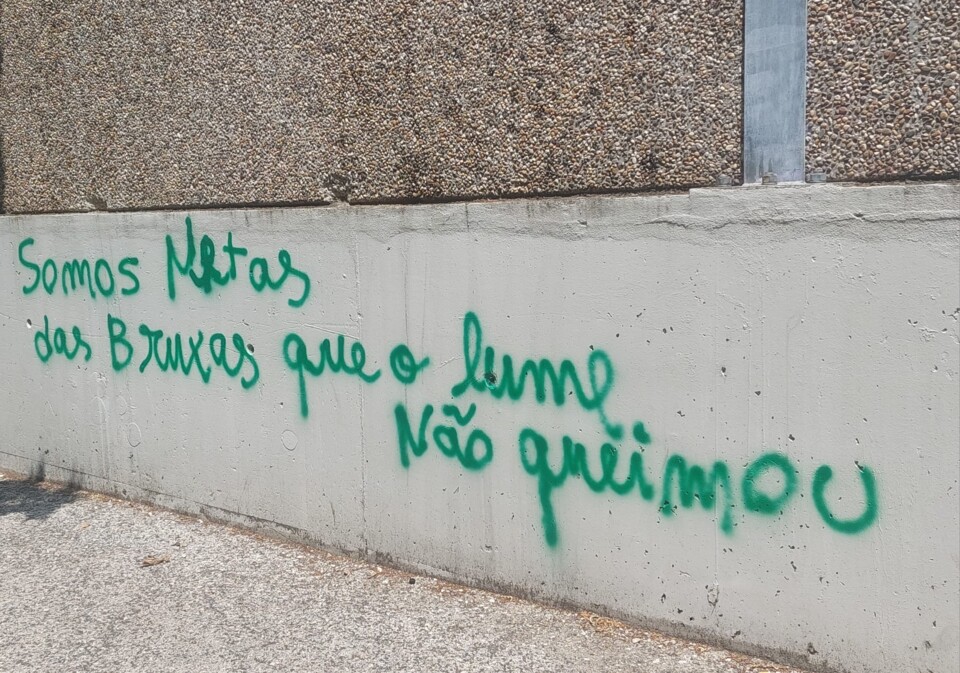 Somos Netas
das Bruxas que o lume
Não queimou